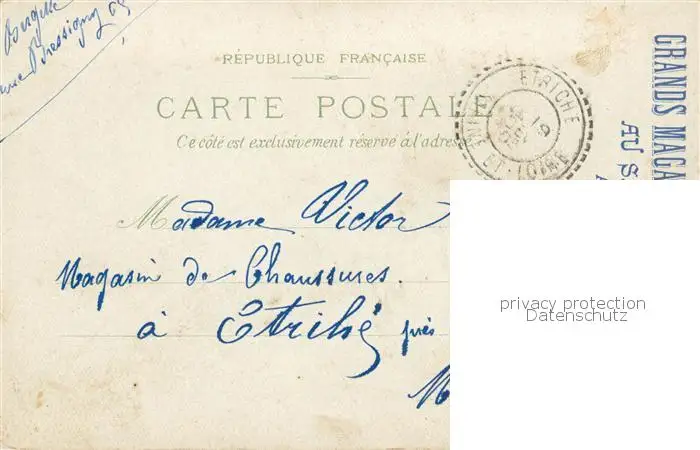 Bressigny 69
RÉPUBLIQUE FRANÇAISE
CARTE POSTALE
Ce côté est exclusivement réservé à l'adresse
ETRICHÉ
19
ET-LOIRE
GRANDS MAGA
AU S
Madame Victor
Magasin de Chaussures.
à Etriché près
M
privacy protection
Datenschutz